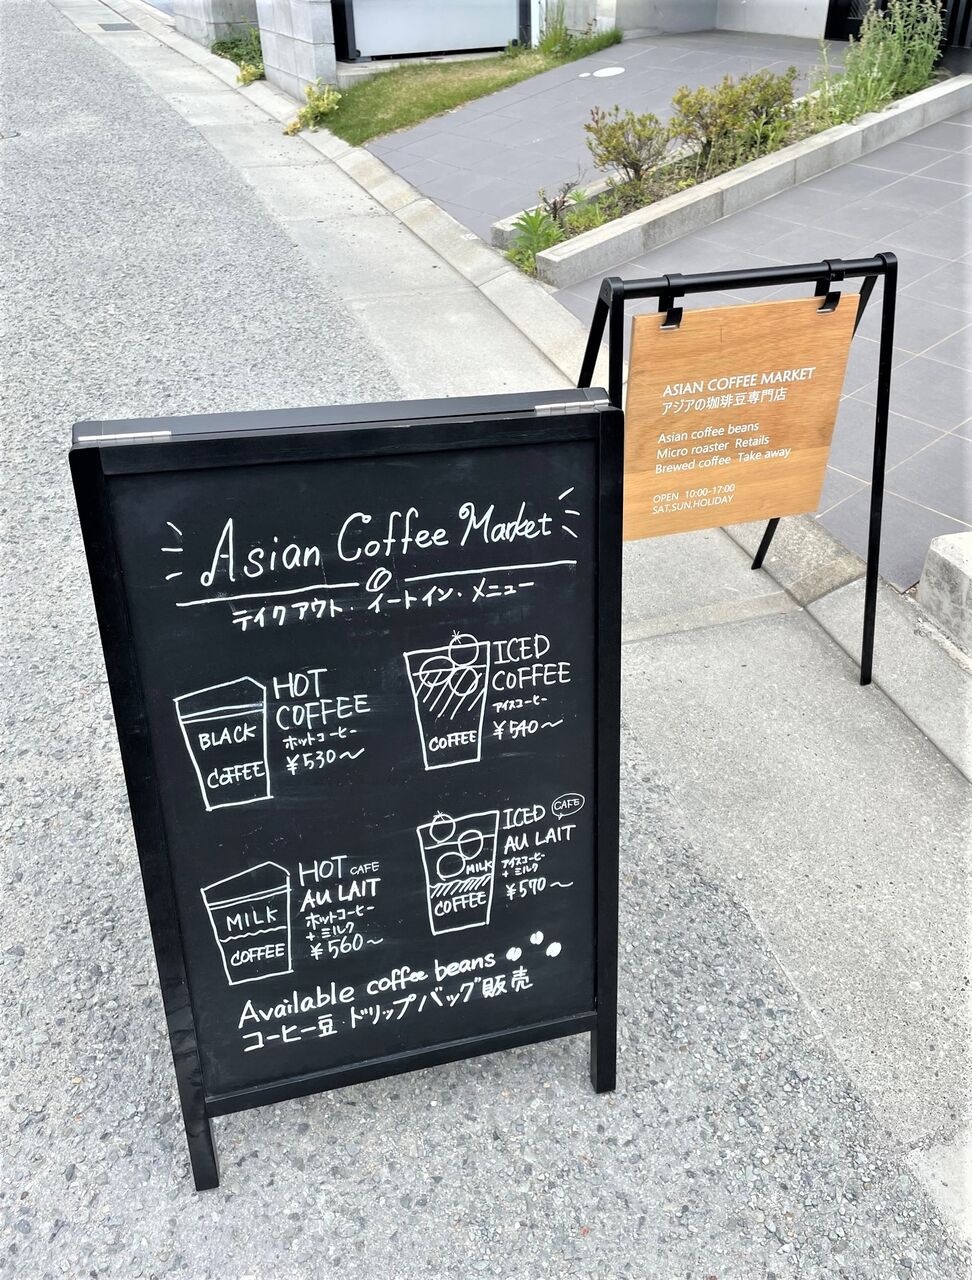 Asian Coffee Market
テイクアウト・イートイン・メニュー
HOT
COFFEE
ホットコーヒー
¥530〜
BLACK
COFFEE
ICED
COFFEE
アイスコーヒー
¥540〜
COFFEE
HOT CAFE
AU LAIT
ホットコーヒー
+ ミルク
¥560〜
MILK
COFFEE
ICED CAFE
AU LAIT
アイスコーヒー
+ ミルク
¥570〜
MILK
COFFEE
Available coffee beans
コーヒー豆 ドリップバッグ販売
ASIAN COFFEE MARKET
アジアの珈琲豆専門店
Asian coffee beans
Micro roaster Retails
Brewed coffee Take away
OPEN 10:00-17:00
SAT,SUN,HOLIDAY